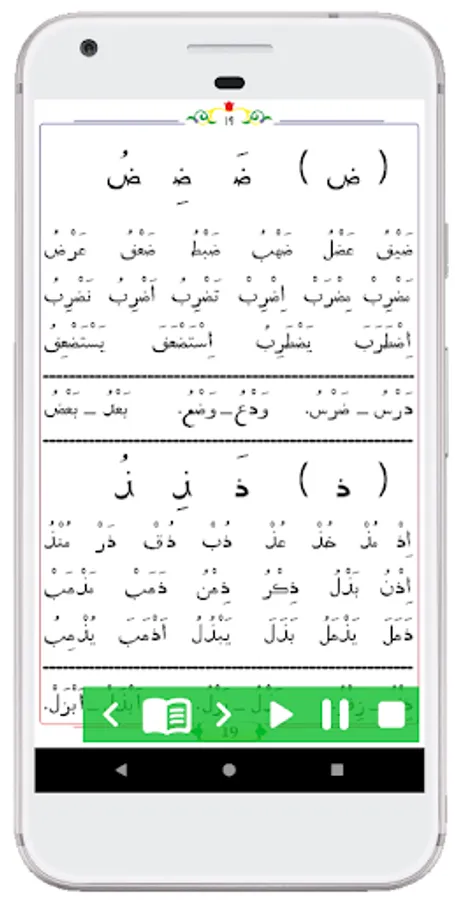 ١٩
( ض ) ضَ ضِ ضُ
ضَيْقُ عَضْلُ ضَهْبُ ضَبْطُ ضَعْفُ عَرْضُ
مَضْرِبْ مِضْرَبْ اِضْرِبْ تَضْرِبُ اَضْرِبُ نَضْرِبُ
اِضْطَرَبَ يَضْطَرِبُ اِسْتَضْعَفَ يَسْتَضْعِفُ
دَرْسُ ــ ضَرْسُ. وَدْعُ ــ وَضْعُ. بَعْدُ ــ بَعْضُ
( ذ ) ذَ ذِ ذُ
اِذْ مُذْ خُذْ عُذْ ذُبْ ذُقْ ذَرْ مُنْذُ
اِذْنُ بَذْلُ ذِكْرُ ذِهْنُ ذَهَبَ مَذْهَبْ
ذَهَلَ يَذْهَلُ بَذَلَ يَبْذُلُ اَذْهَبَ يُذْهِبُ
اَبْزَلْ.
19